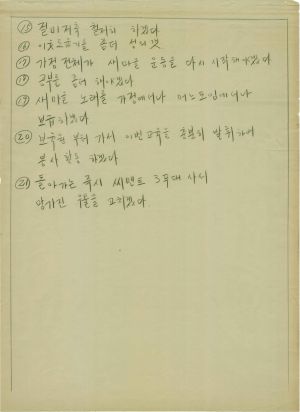 ⑮ 절미저축 철저히 하겠다
⑯ 이웃돕기를 좀더 성의껏
⑰ 가정전체가 새마을 운동을 다시 시작해야겠다
⑱ 공부를 좀더 해야겠다
⑲ 새마을 노래를 가정에서나 어느모임에서나
보급하겠다
⑳ 부터 가서 이번교육을 충분히 발휘하여
봉사 활동 하겠다
㉑ 돌아가는 즉시 씨멘트 3푸대 사서
망가진 우물을 고치겠다